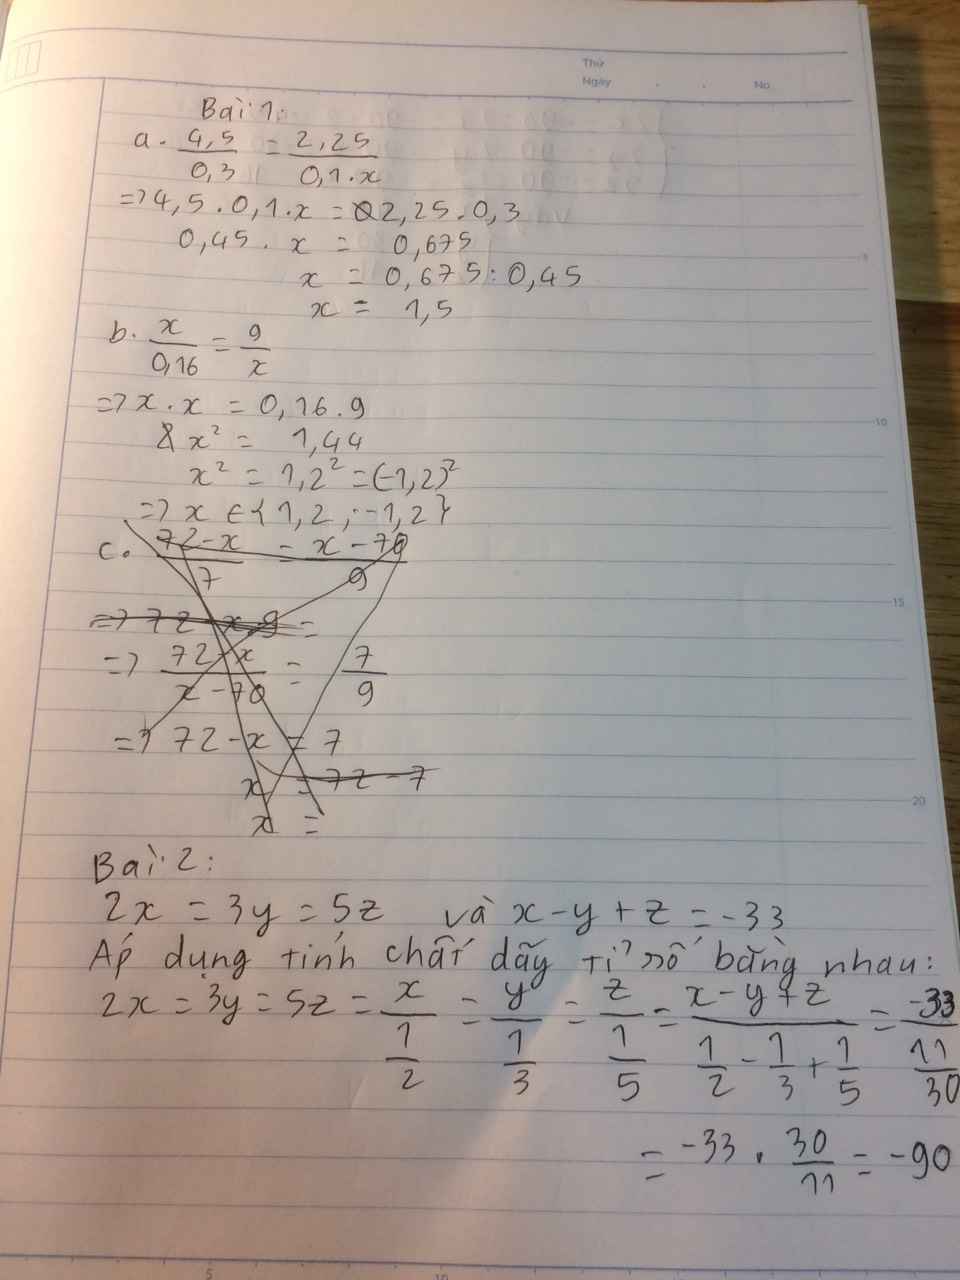 Thứ
Ngày . . No
Bài 1:
a. 4,5/0,3 = 2,25/0,1.x
=> 4,5.0,1.x = 2,25.0,3
0,45. x = 0,675
x = 0,675:0,45
x = 1,5
b. x/0,16 = 9/x
=> x.x = 0,16.9
x² = 1,44
x² = 1,2² = (-1,2)²
=> x ∈ {1,2 ; -1,2}
c. 72-x/7 = x-70/9
=> 72-x.9 =
=> 72-x/x-70 = 7/9
=> 72-x = 7
x = 72-7
x =
Bài 2:
2x = 3y = 5z và x-y+z = -33
Áp dụng tính chất dãy tỉ số bằng nhau:
2x = 3y = 5z = x/(1/2) = y/(1/3) = z/(1/5) = x-y+z/(1/2 - 1/3 + 1/5) = -33/(11/30)
= -33 . 30/11 = -90
5
10
15
20
5
10